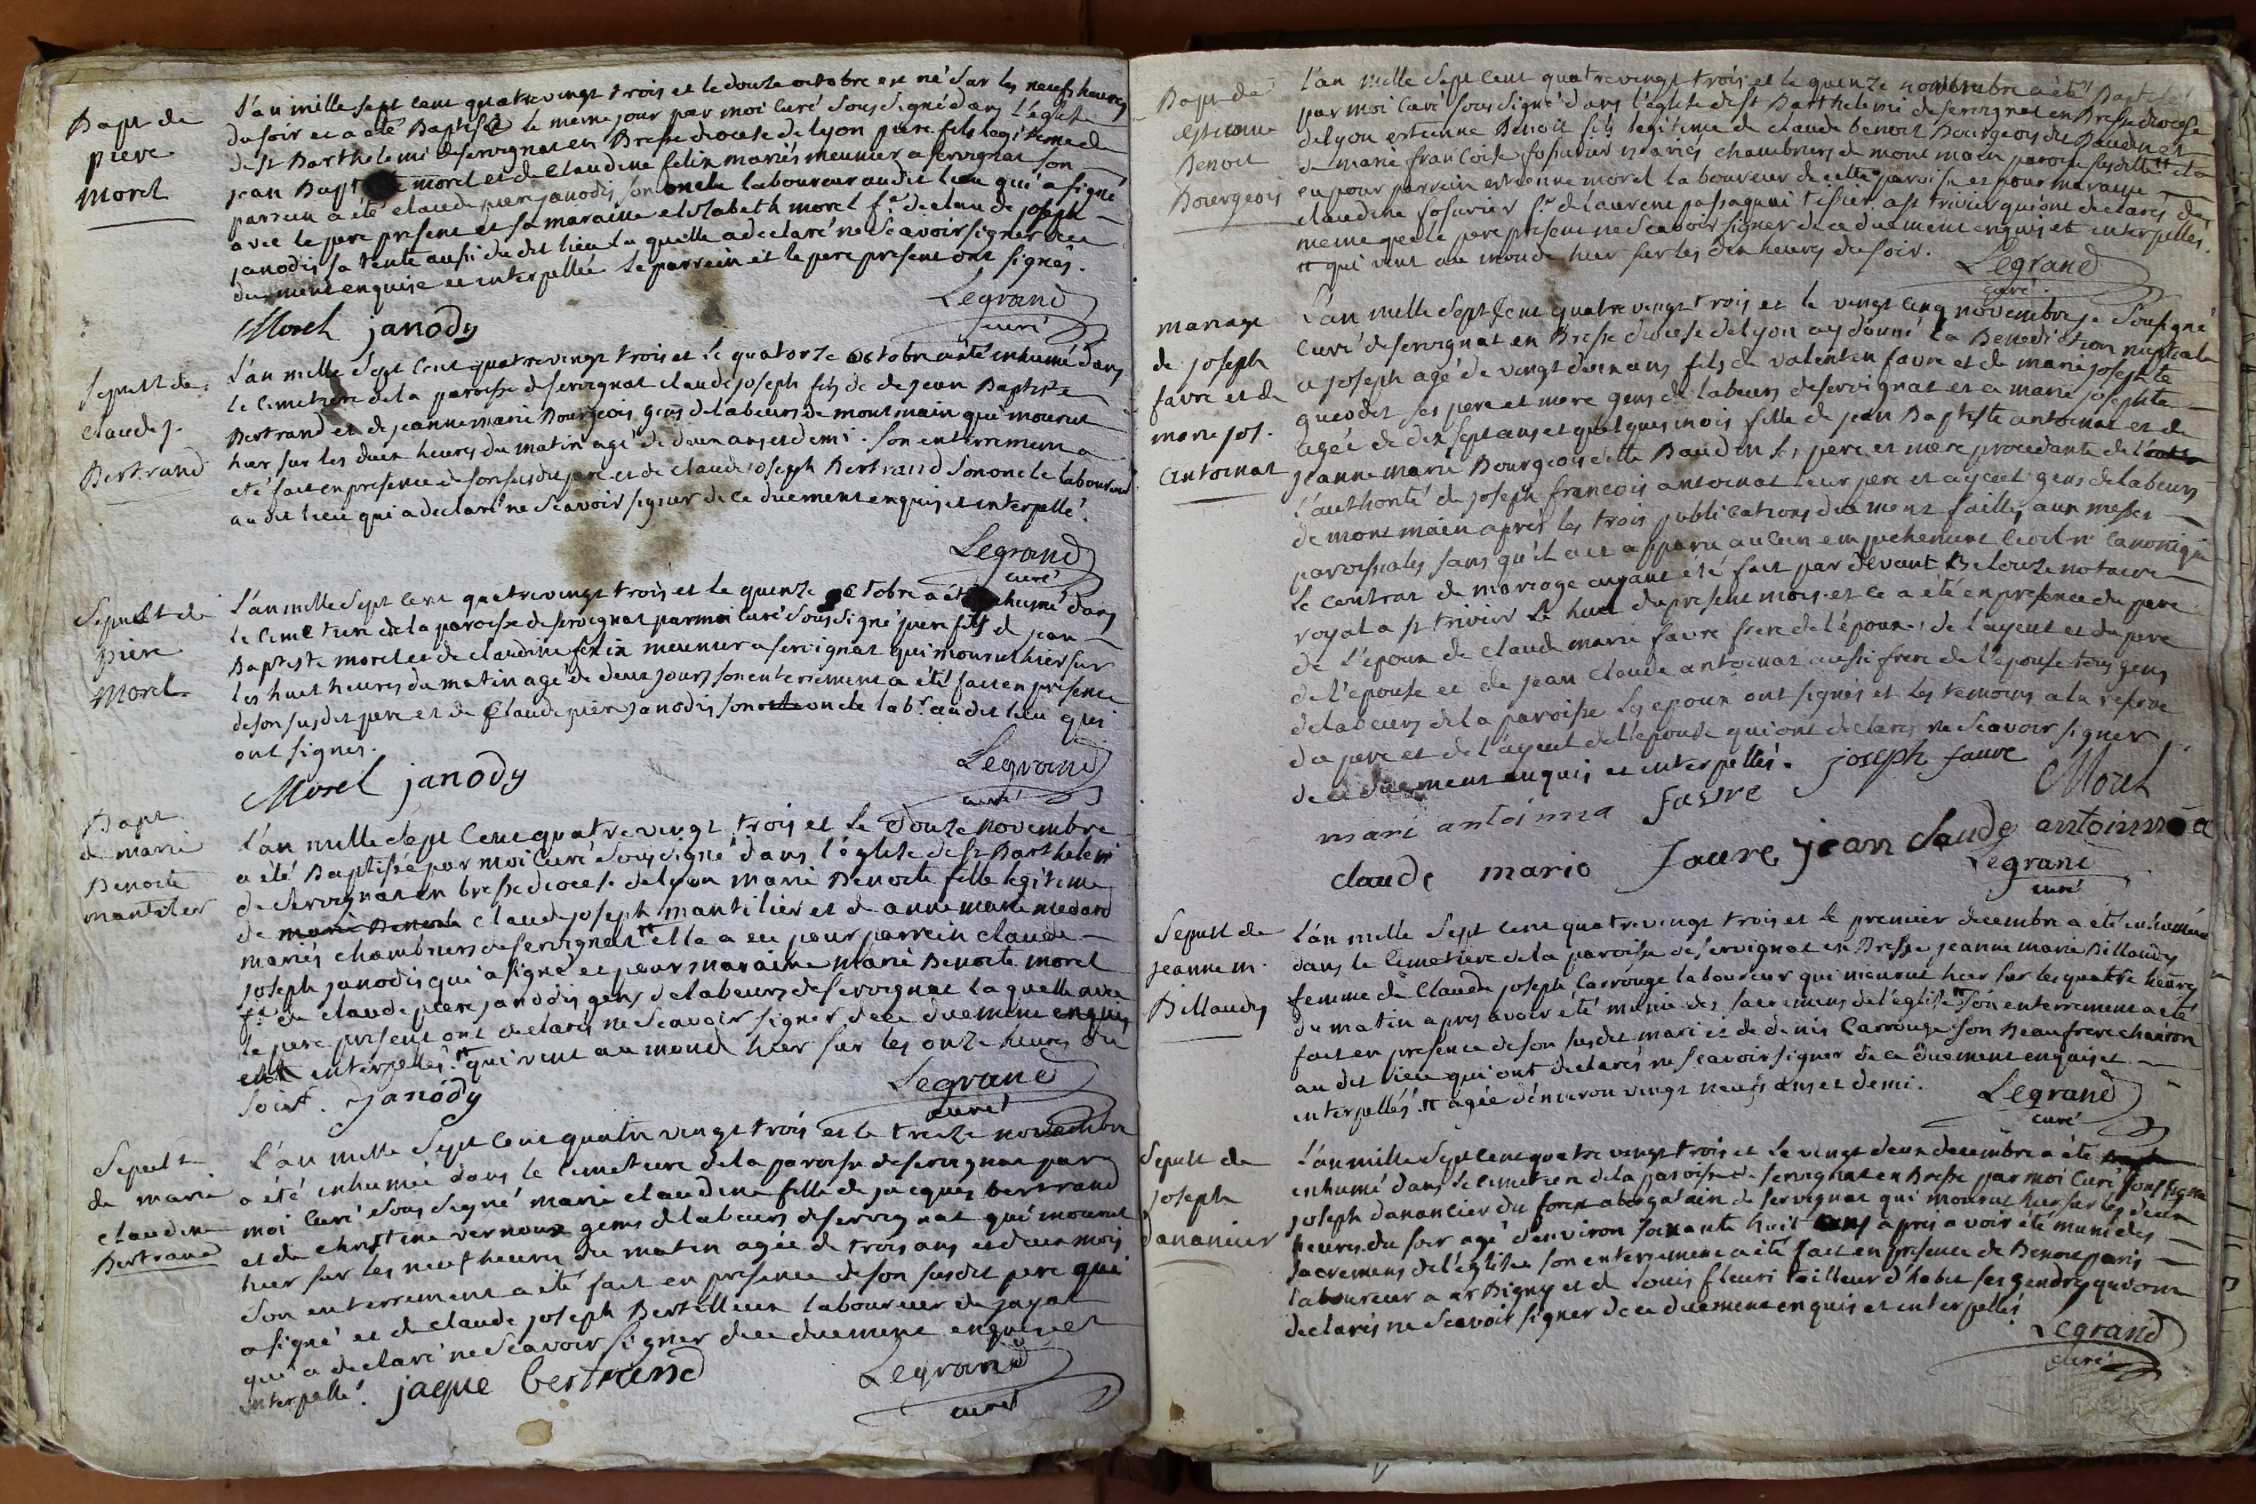 Bapt de
piere
Morel
L'an mille sept cent quatrevingt trois et le douze octobre est né sur les neufs heures
du soir et a été Baptisé le meme jour par moi curé sous signé dans l'église
de st Barthelemi de servignat en Bresse diocese de lyon piere fils legitime de
jean Bapt morel et de Claudine felix mariés meunier a servignat son
parrein a été claude piere janodis son oncle laboureur audit lieu qui a signé
avec le pere present et sa maraine elisabeth morel fe de claude joseph
janodis sa tente aussi du dit lieu la quelle a declaré ne scavoir signer de ce
duement enquise et interpellée le parrein et le pere present ont signés.
Legrand
curé
Morel janody
Sepult de
claude j.
Bertrand
L'an mille sept cent quatrevingt trois et le quatorze octobre a été inhumé dans
le cimetiere de la paroisse de servignat claude joseph fils de de jean Baptiste
Bertrand et de jeanne marie Bourgeois gens de labeurs de montmain qui mourut
hier sur les deux heures du matin agé de deux ans et demi. son enterrement a
été fait en presence de son susdit pere et de claude joseph Bertrand son oncle laboureur
au dit lieu qui a declaré ne scavoir signer de ce duement enquis et interpellé.
Legrand
curé
Sepult de
piere
Morel
L'an mille sept cent quatrevingt trois et le quinze octobre a été inhumé dans
le cimetiere de la paroisse de servignat par moi curé sous signé piere fils de jean
Baptiste morel et de claudine felix meunier a servignat qui mourut hier sur
les huit heures du matin agé de deux jours son enterrement a été fait en presence
de son susdit pere et de Claude piere janodis son oncle labr. au dit lieu qui
ont signes.
Legrand
curé
Morel janody
Bapt
de marie
Benoite
mantilier
L'an mille sept cent quatre vingt trois et le douze novembre
a été Baptisée par moi curé sous signé dans l'église de st Barthelemi
de servignat en bresse diocese de lyon marie Benoite fille legitime
de marie Benoite claude joseph mantilier et de anne marie medard
mariés chambriers de servignat tt elle a eu pour parrein claude
joseph janodis qui a signé et pour maraine marie Benoite morel
fe de claude piere janodis gens de labeurs de servignat la quelle avec
le pere present ont declarés ne scavoir signer de ce duement enquis
et interpellés. tt qui vint au monde hier sur les onze heures du
soir. Janody
Legrand
curé
Sepult
de marie
claudine
Bertrand
L'an mille sept cent quatre vingt trois et le treize novembre
a été inhumée dans le cimetiere de la paroisse de servignat par
moi curé sous signé marie claudine fille de jacques bertrand
et de christine vernoux gens de labeurs de servignat qui mourut
hier sur les neuf heures du matin agée de trois ans et deux mois
son enterrement a été fait en presence de son susdit pere qui
a signé et de claude joseph Bertillier laboureur de jayat
qui a declaré ne scavoir signer de ce duement enquis et
interpellé. jaque bertrand
Legrand
curé
Bapt de
estienne
Benoit
Bourgeois
L'an mille sept cent quatrevingt trois et le quinze novembre a été Baptisé
par moi curé sous signé dans l'église de st Barthelemi de servignat en Bresse diocese
de lyon estienne Benoit fils legitime de claude benoit Bourgeois dit Baudin et
de marie francoise fosurier mariés chambriers de mont main paroisse susditte tt il a
eu pour parrein estienne morel laboureur de cette paroisse et pour maraine
claudine fosurier fe de laurent passaquai tissier a st trivier qui ont declarés de
meme que le pere present ne scavoir signer de ce duement enquis et interpellés.
tt qui vint au monde hier sur les dix heures du soir.
Legrand
curé
mariage
de joseph
favre et de
marie jos.
antoinat
L'an mille sept cent quatrevingt trois et le vingt cinq novembre je sousigné
curé de servignat en Bresse diocese de lyon ay donné la Benediction nuptiale
a joseph agé de vingt deux ans fils de valentin favre et de marie josephte
gueodet ses pere et mere gens de labeurs de servignat et a marie josephte
agée de dix sept ans et quelques mois fille de jean Baptiste antoinat et de
jeanne marie Bourgeois ditte Baudin ses pere et mere procedante de
l'authorité de joseph francois antoinat leur pere et ayeul gens de labeurs
de mont main aprés les trois publications duement faittes aux messes
paroissiales sans qu'il ait apparu aucun empechement civil ni canonique
le contrat de mariage ayant été fait par devant Belouze notaire
royal a st trivier le huit du present mois et ce a été en presence du pere
de l'epoux de claude marie favre frere de l'époux, de l'ayeul et du pere
de l'epouse et de jean claude antoinat aussi frere de l'epouse tous gens
de labeurs de la paroisse les epoux ont signés et les temoins a la reserve
du pere et de l'ayeul de l'epouse qui ont declarés ne scavoir signer
de ce duement enquis et interpellés. joseph favre
Morel
mari antoinna favre
claude mario faure, jean claude antoinna
Legrand
curé
Sepult de
jeanne m.
Billaudy
L'an mille sept cent quatrevingt trois et le premier decembre a été inhumée
dans le cimetiere de la paroisse de servignat en Bresse jeanne marie Billaudy
femme de Claude joseph Carrouge laboureur qui mourut hier sur les quatre heures
du matin apres avoir été munie des sacremens de l'église tt son enterrement a été
fait en presence de son susdit mari et de denis Carrouge son Beaufrere charron
au dit lieu qui ont declarés ne scavoir signer de ce duement enquis et
interpellés. tt agée d'environ vingt neuf ans et demi.
Legrand
curé
Sepult de
joseph
danancier
L'an mille sept cent quatre vingt trois et le vingt deux decembre a été
inhumé dans le cimetiere de la paroisse de servignat en Bresse par moi curé sous signé
joseph danancier du forest abergatain de servignat qui mourut hier sur les deux
heures du soir agé d'environ soixante huit ans apres avoir été muni des
sacremens de l'église son enterrement a été fait en presence de Benoit paris
laboureur a arbigny et de louis fleuri tailleur d'habit ses gendres qui ont
declarés ne scavoir signer de ce duement enquis et interpellés
Legrand
curé